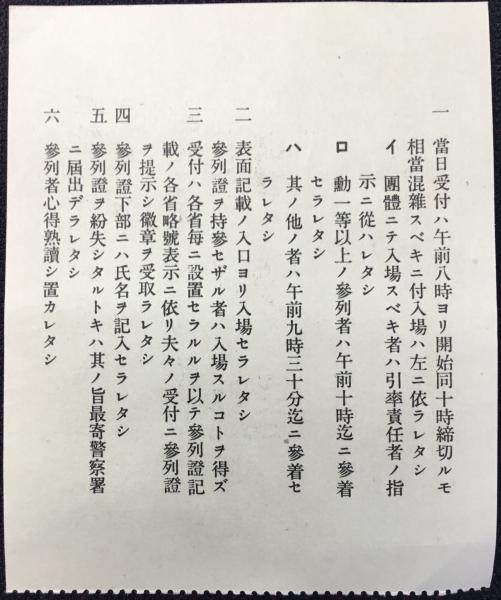 一 當日受付ハ午前八時ヨリ開始同十時締切ルモ
相當混雜スベキニ付入場ハ左ニ依ラレタシ
イ 團體ニテ入場スベキ者ハ引率責任者ノ指
示ニ從ハレタシ
ロ 勳一等以上ノ參列者ハ午前十時迄ニ參着
セラレタシ
ハ 其ノ他ノ者ハ午前九時三十分迄ニ參着セ
ラレタシ
二 表面記載ノ入口ヨリ入場セラレタシ
參列證ヲ持參セザル者ハ入場スルコトヲ得ズ
三 受付ハ各省每ニ設置セラルルヲ以テ參列證記
載ノ各省略號表示ニ依リ夫々ノ受付ニ參列證
ヲ提示シ徽章ヲ受取ラレタシ
四 參列證下部ニハ氏名ヲ記入セラレタシ
五 參列證ヲ紛失シタルトキハ其ノ旨最寄警察署
ニ屆出デラレタシ
六 參列者心得熟讀シ置カレタシ